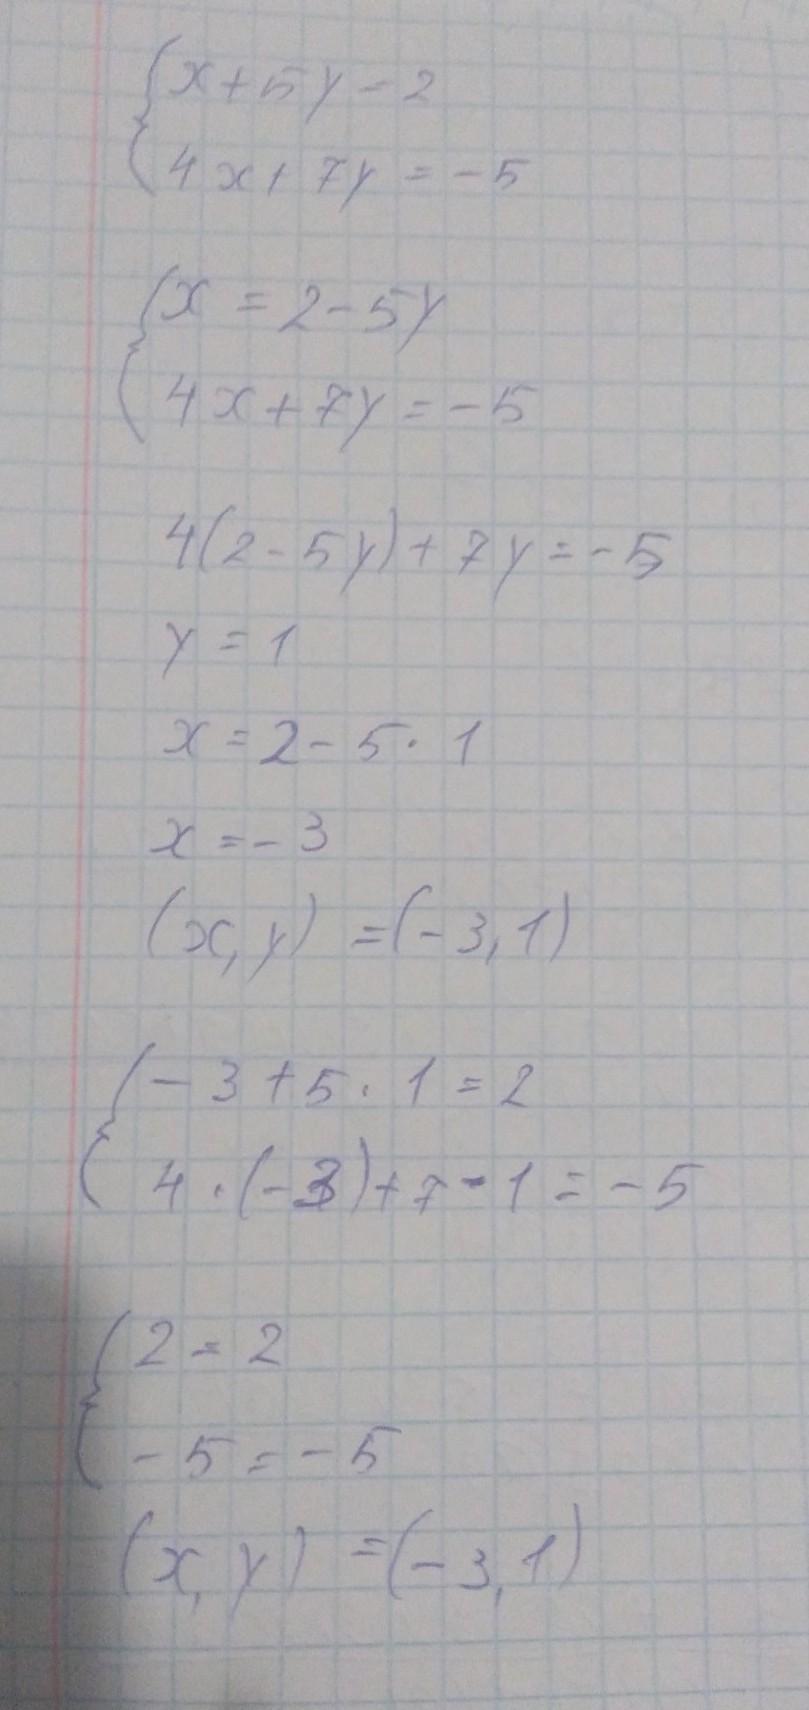 x+5y-2
4x+7y=-5
x=2-5y
4x+7y=-5
4(2-5y)+7y=-5
y=1
x=2-5·1
x=-3
(x,y)=(-3,1)
-3+5·1=2
4·(-3)+7·1=-5
2=2
-5=-5
(x,y)=(-3,1)